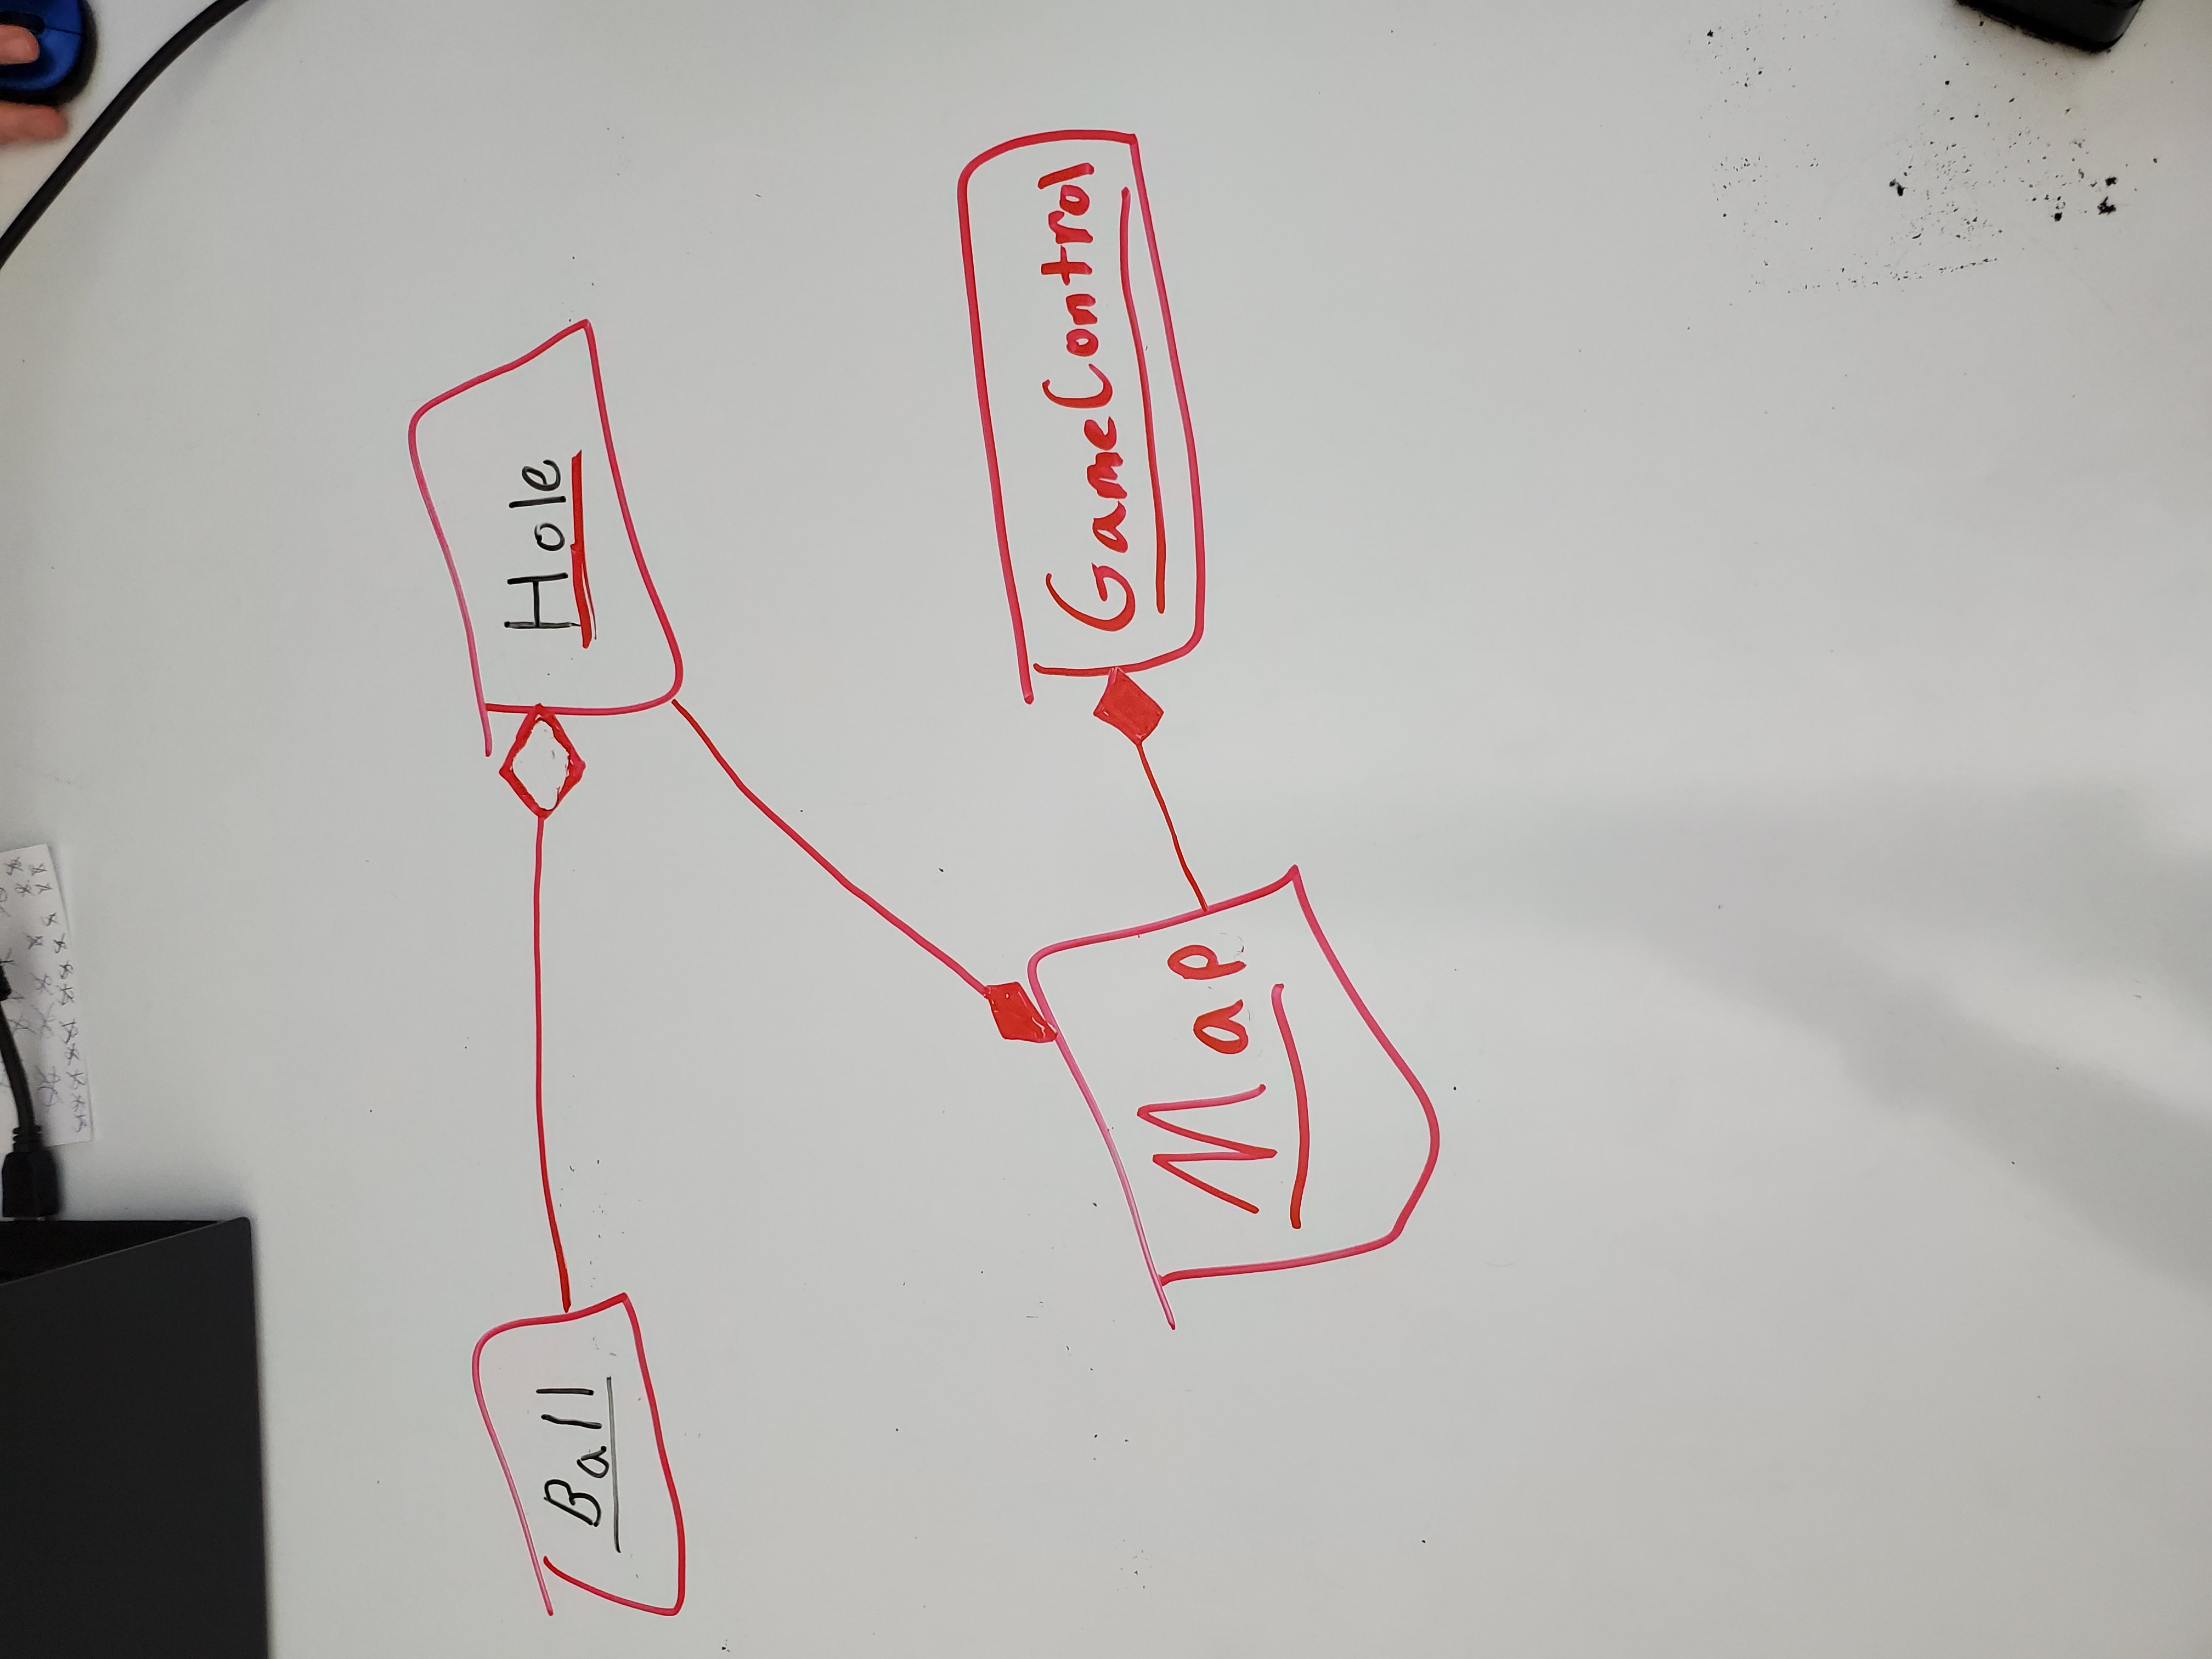 Ball
Hole
Map
GameControl